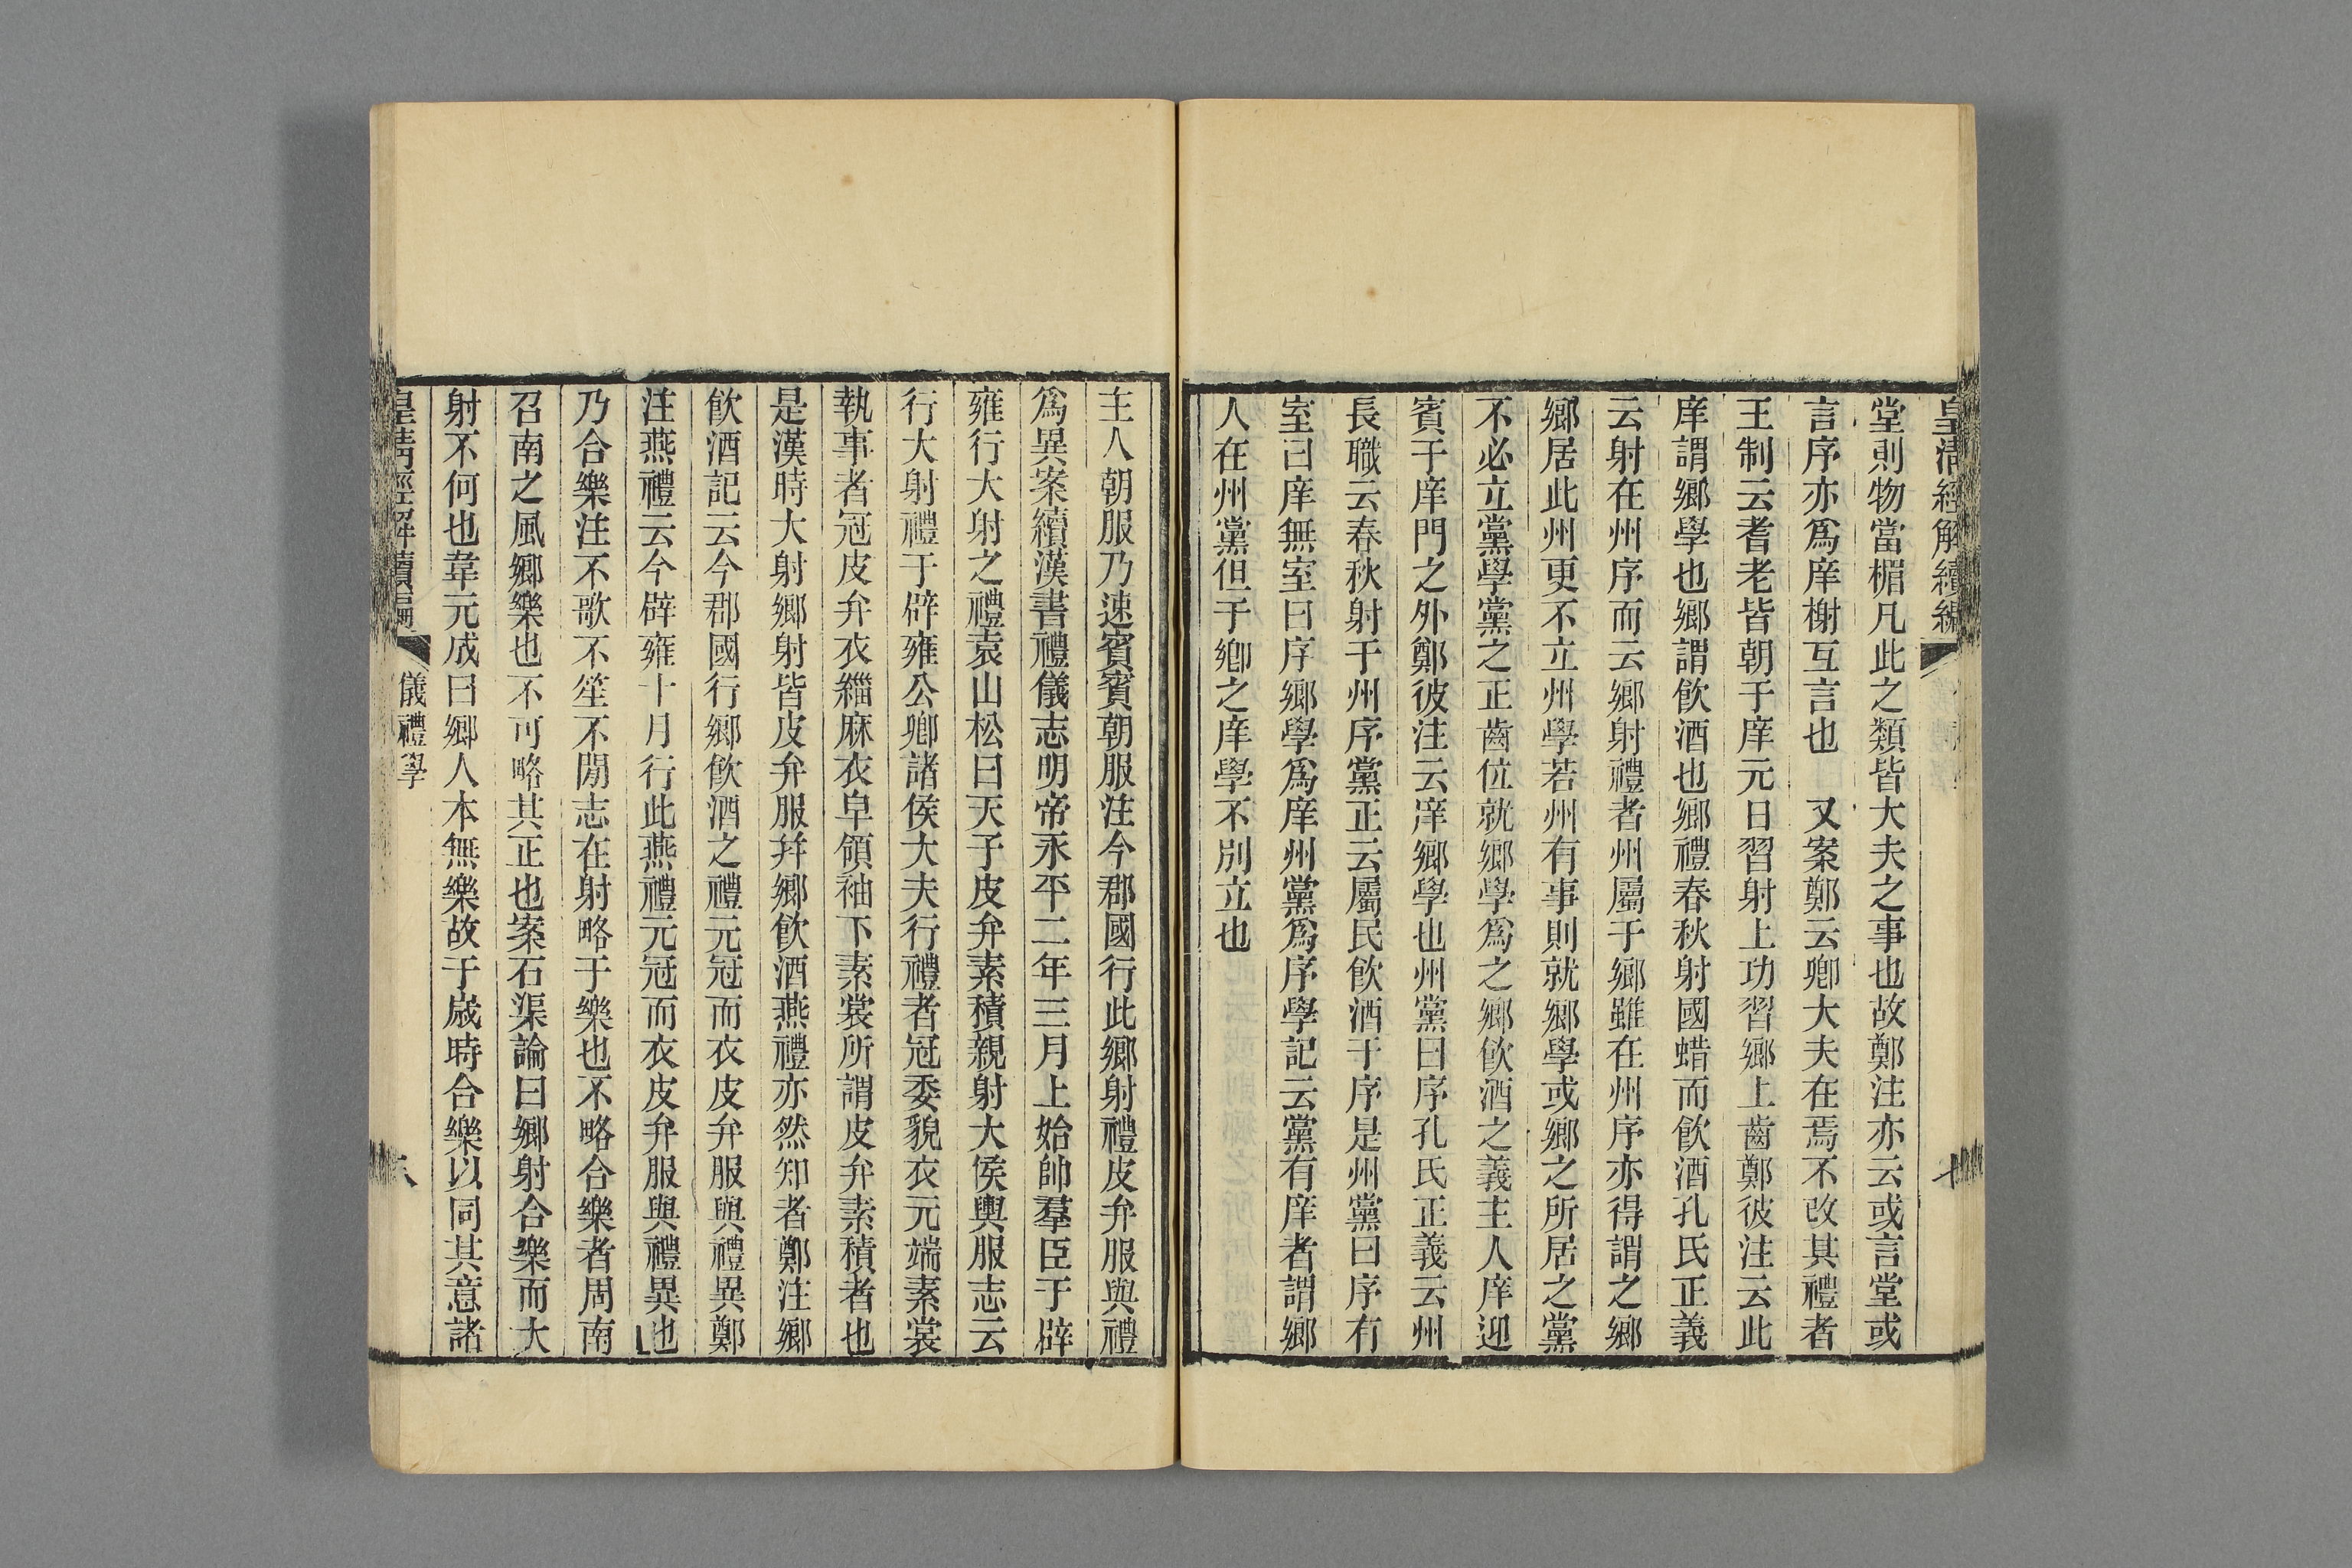 皇清經解續編
七
堂則物當楣凡此之類皆大夫之事也故鄭注亦云或言堂或
言序亦爲庠榭互言也　又案鄭云鄉大夫在焉不改其禮者
王制云耆老皆朝于庠元日習射上功習鄉上齒鄭彼注云此
庠謂鄉學也鄉謂飮酒也鄉禮春秋射國蜡而飮酒孔氏正義
云射在州序而云鄉射禮者州屬于鄉雖在州序亦得謂之鄉
鄉居此州更不立州學若州有事則就鄉學或鄉之所居之黨
不必立黨學黨之正齒位就鄉學爲之鄉飮酒之義主人庠迎
賓于庠門之外鄭彼注云庠鄉學也州黨曰序孔氏正義云州
長職云春秋射于州序黨正云屬民飮酒于序是州黨曰序有
室曰庠無室曰序鄉學爲庠州黨爲序學記云黨有庠者謂鄉
人在州黨但于鄉之庠學不別立也
主人朝服乃速賓賓朝服注今郡國行此鄉射禮皮弁服與禮
爲異案續漢書禮儀志明帝永平二年三月上始帥羣臣于辟
雍行大射之禮袁山松曰天子皮弁素積親射大侯輿服志云
行大射禮于辟雍公卿諸侯大夫行禮者冠委貌衣元端素裳
執事者冠皮弁衣緇麻衣皁領袖下素裳所謂皮弁素積者也
是漢時大射鄉射皆皮弁服幷鄉飮酒燕禮亦然知者鄭注鄉
飮酒記云今郡國行鄉飮酒之禮元冠而衣皮弁服與禮異鄭
注燕禮云今辟雍十月行此燕禮元冠而衣皮弁服與禮異也
乃合樂注不歌不笙不閒志在射略于樂也不略合樂者周南
召南之風鄉樂也不可略其正也案石渠論曰鄉射合樂而大
射不何也韋元成曰鄉人本無樂故于歲時合樂以同其意諸
皇淸經解續編
儀禮學
八